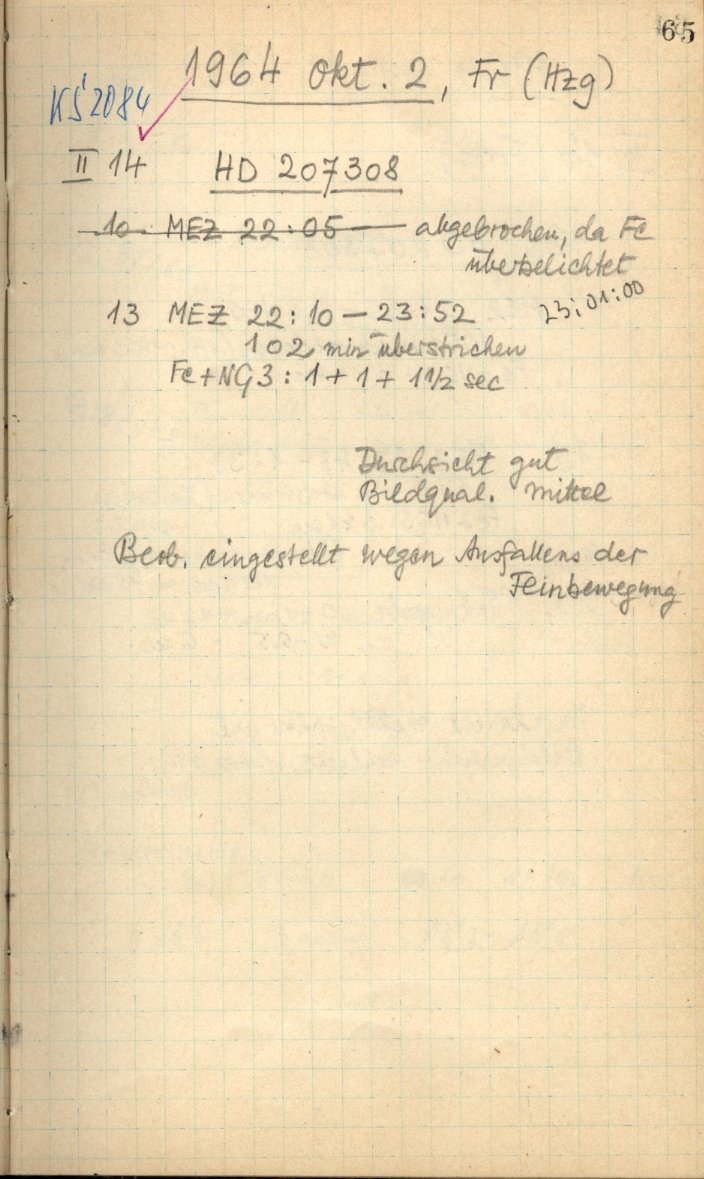 65
1964 Okt. 2, Fr (Hzg)
KS 2084
II 14 HD 207308
10 MEZ 22:05 — abgebrochen, da Fe
überbelichtet
13 MEZ 22:10 — 23:52 23:01:00
102 min überstrichen
Fe+NG3: 1 + 1 + 1 1/2 sec
Durchsicht gut
Bildqual. mittel
Beob. eingestellt wegen Ausfallens der
Feinbewegung